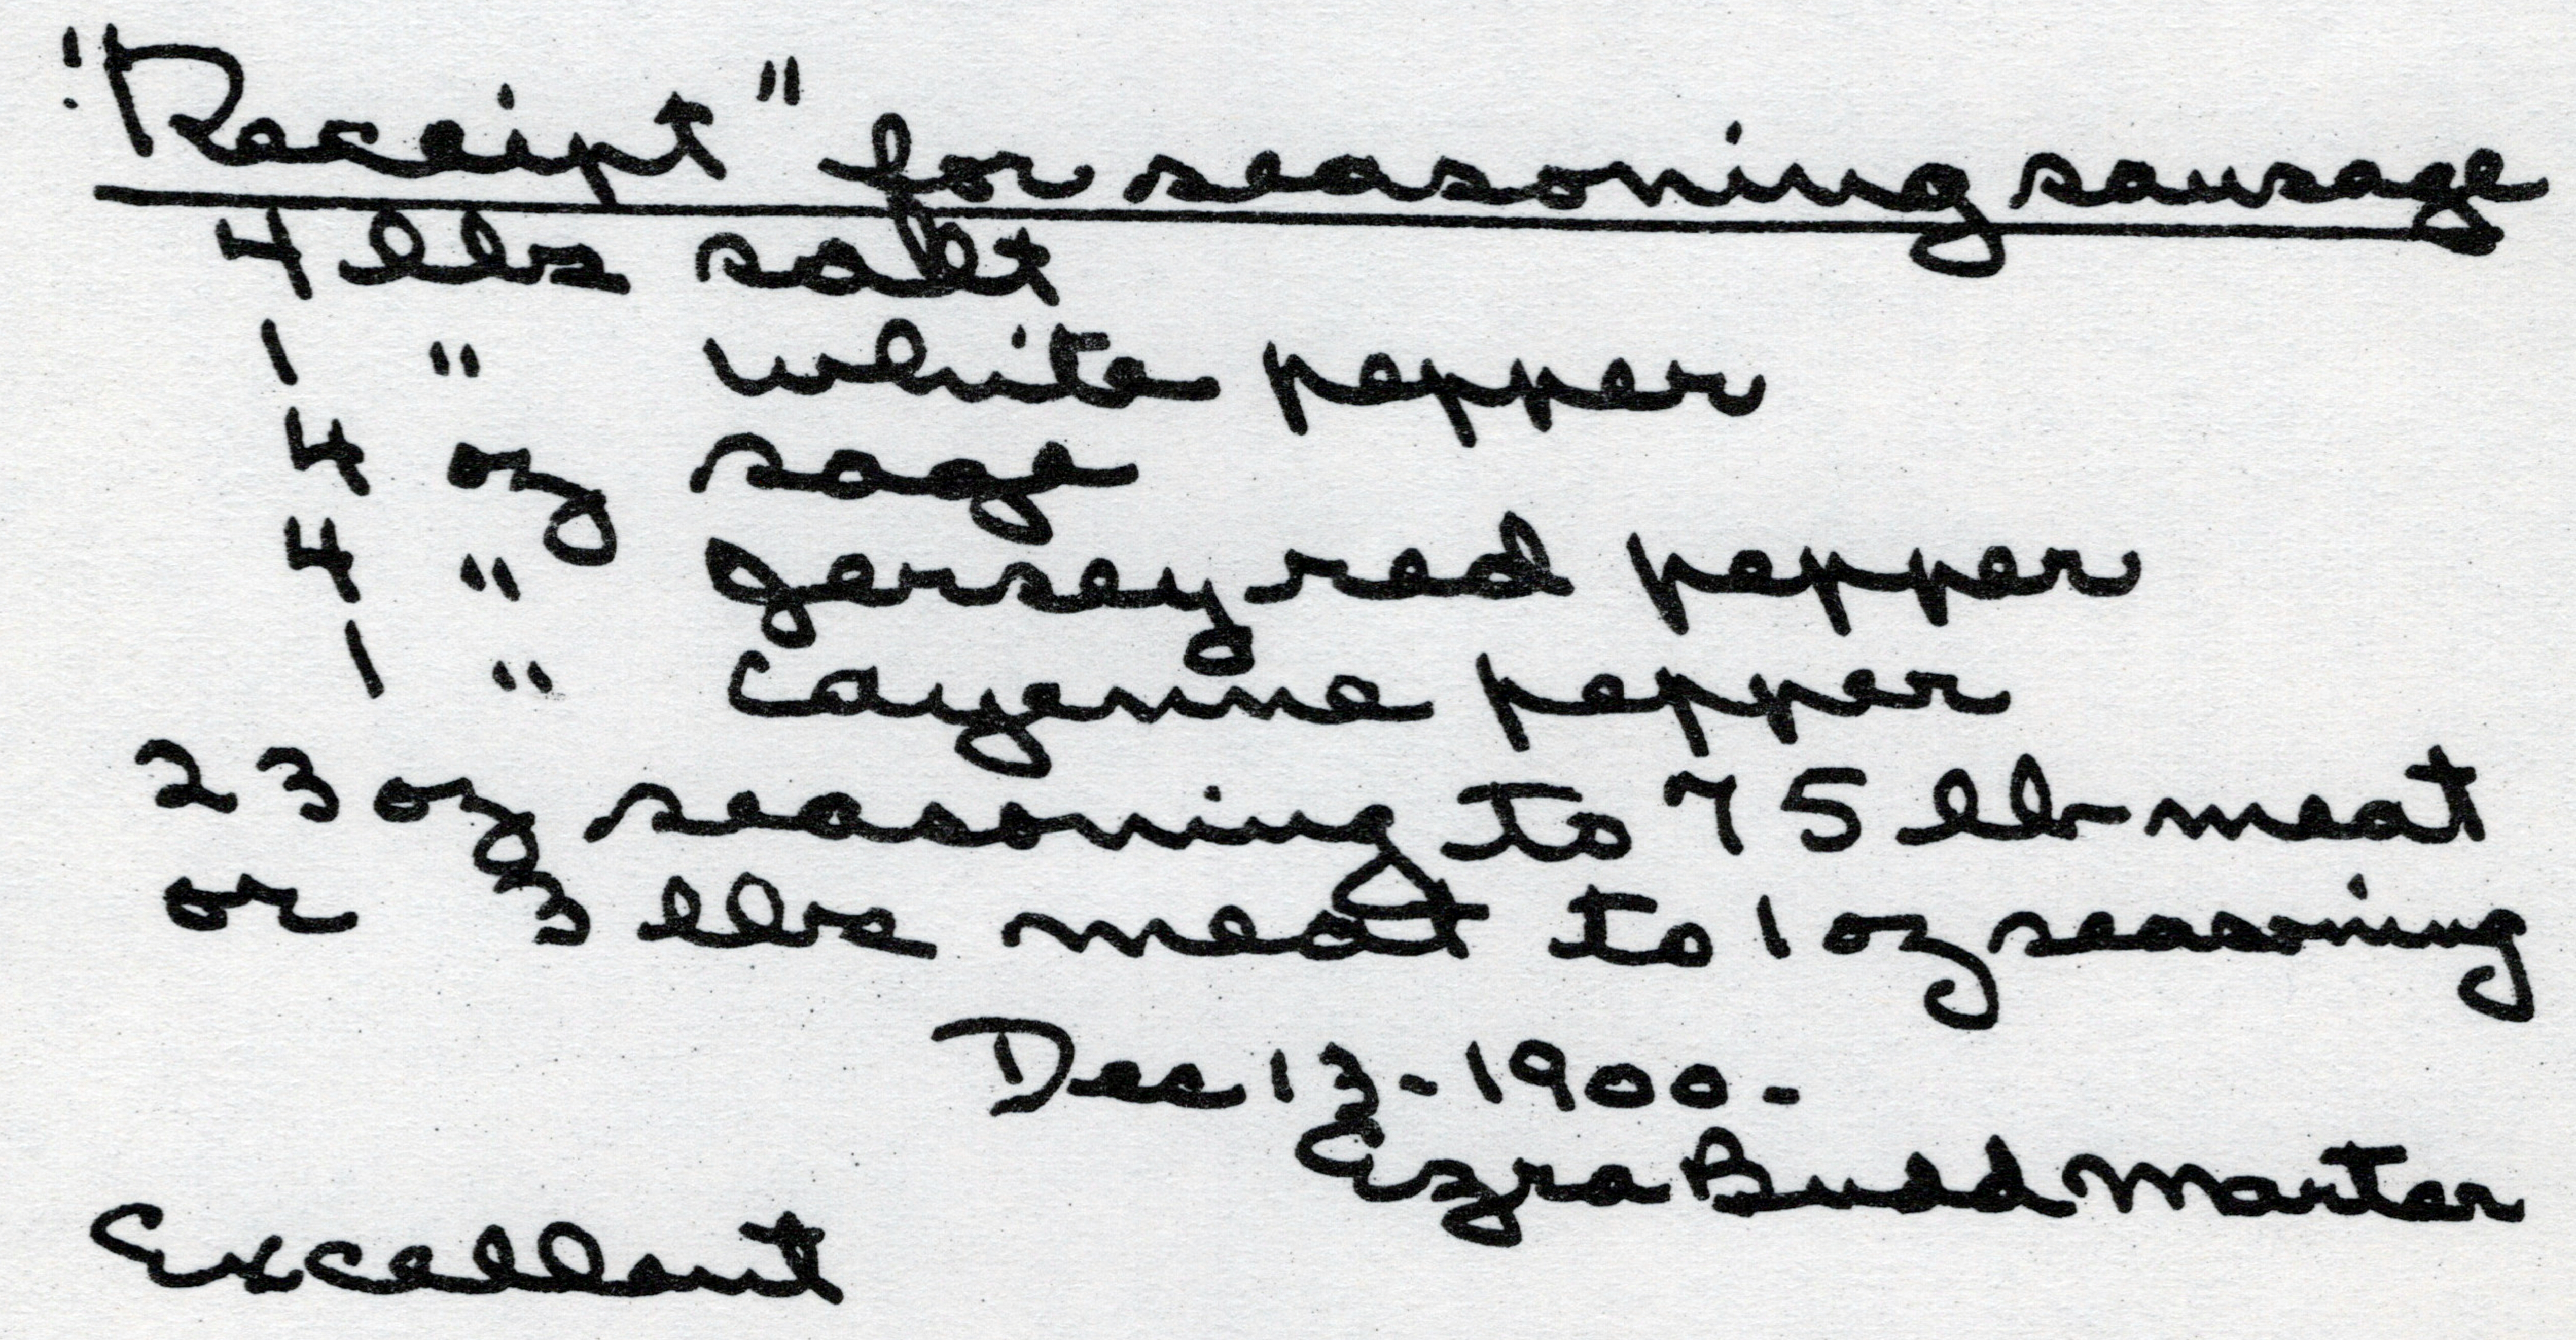 "Receipt" for seasoning sausage
4 lbs salt
1 " white pepper
4 oz sage
4 " Jersey red pepper
1 " Cayenne pepper
23 oz seasoning to 75 lb meat
or 3 lbs meat to 1 oz seasoning
Dec 13-1900-
Ezra Budd Marter
Excellent